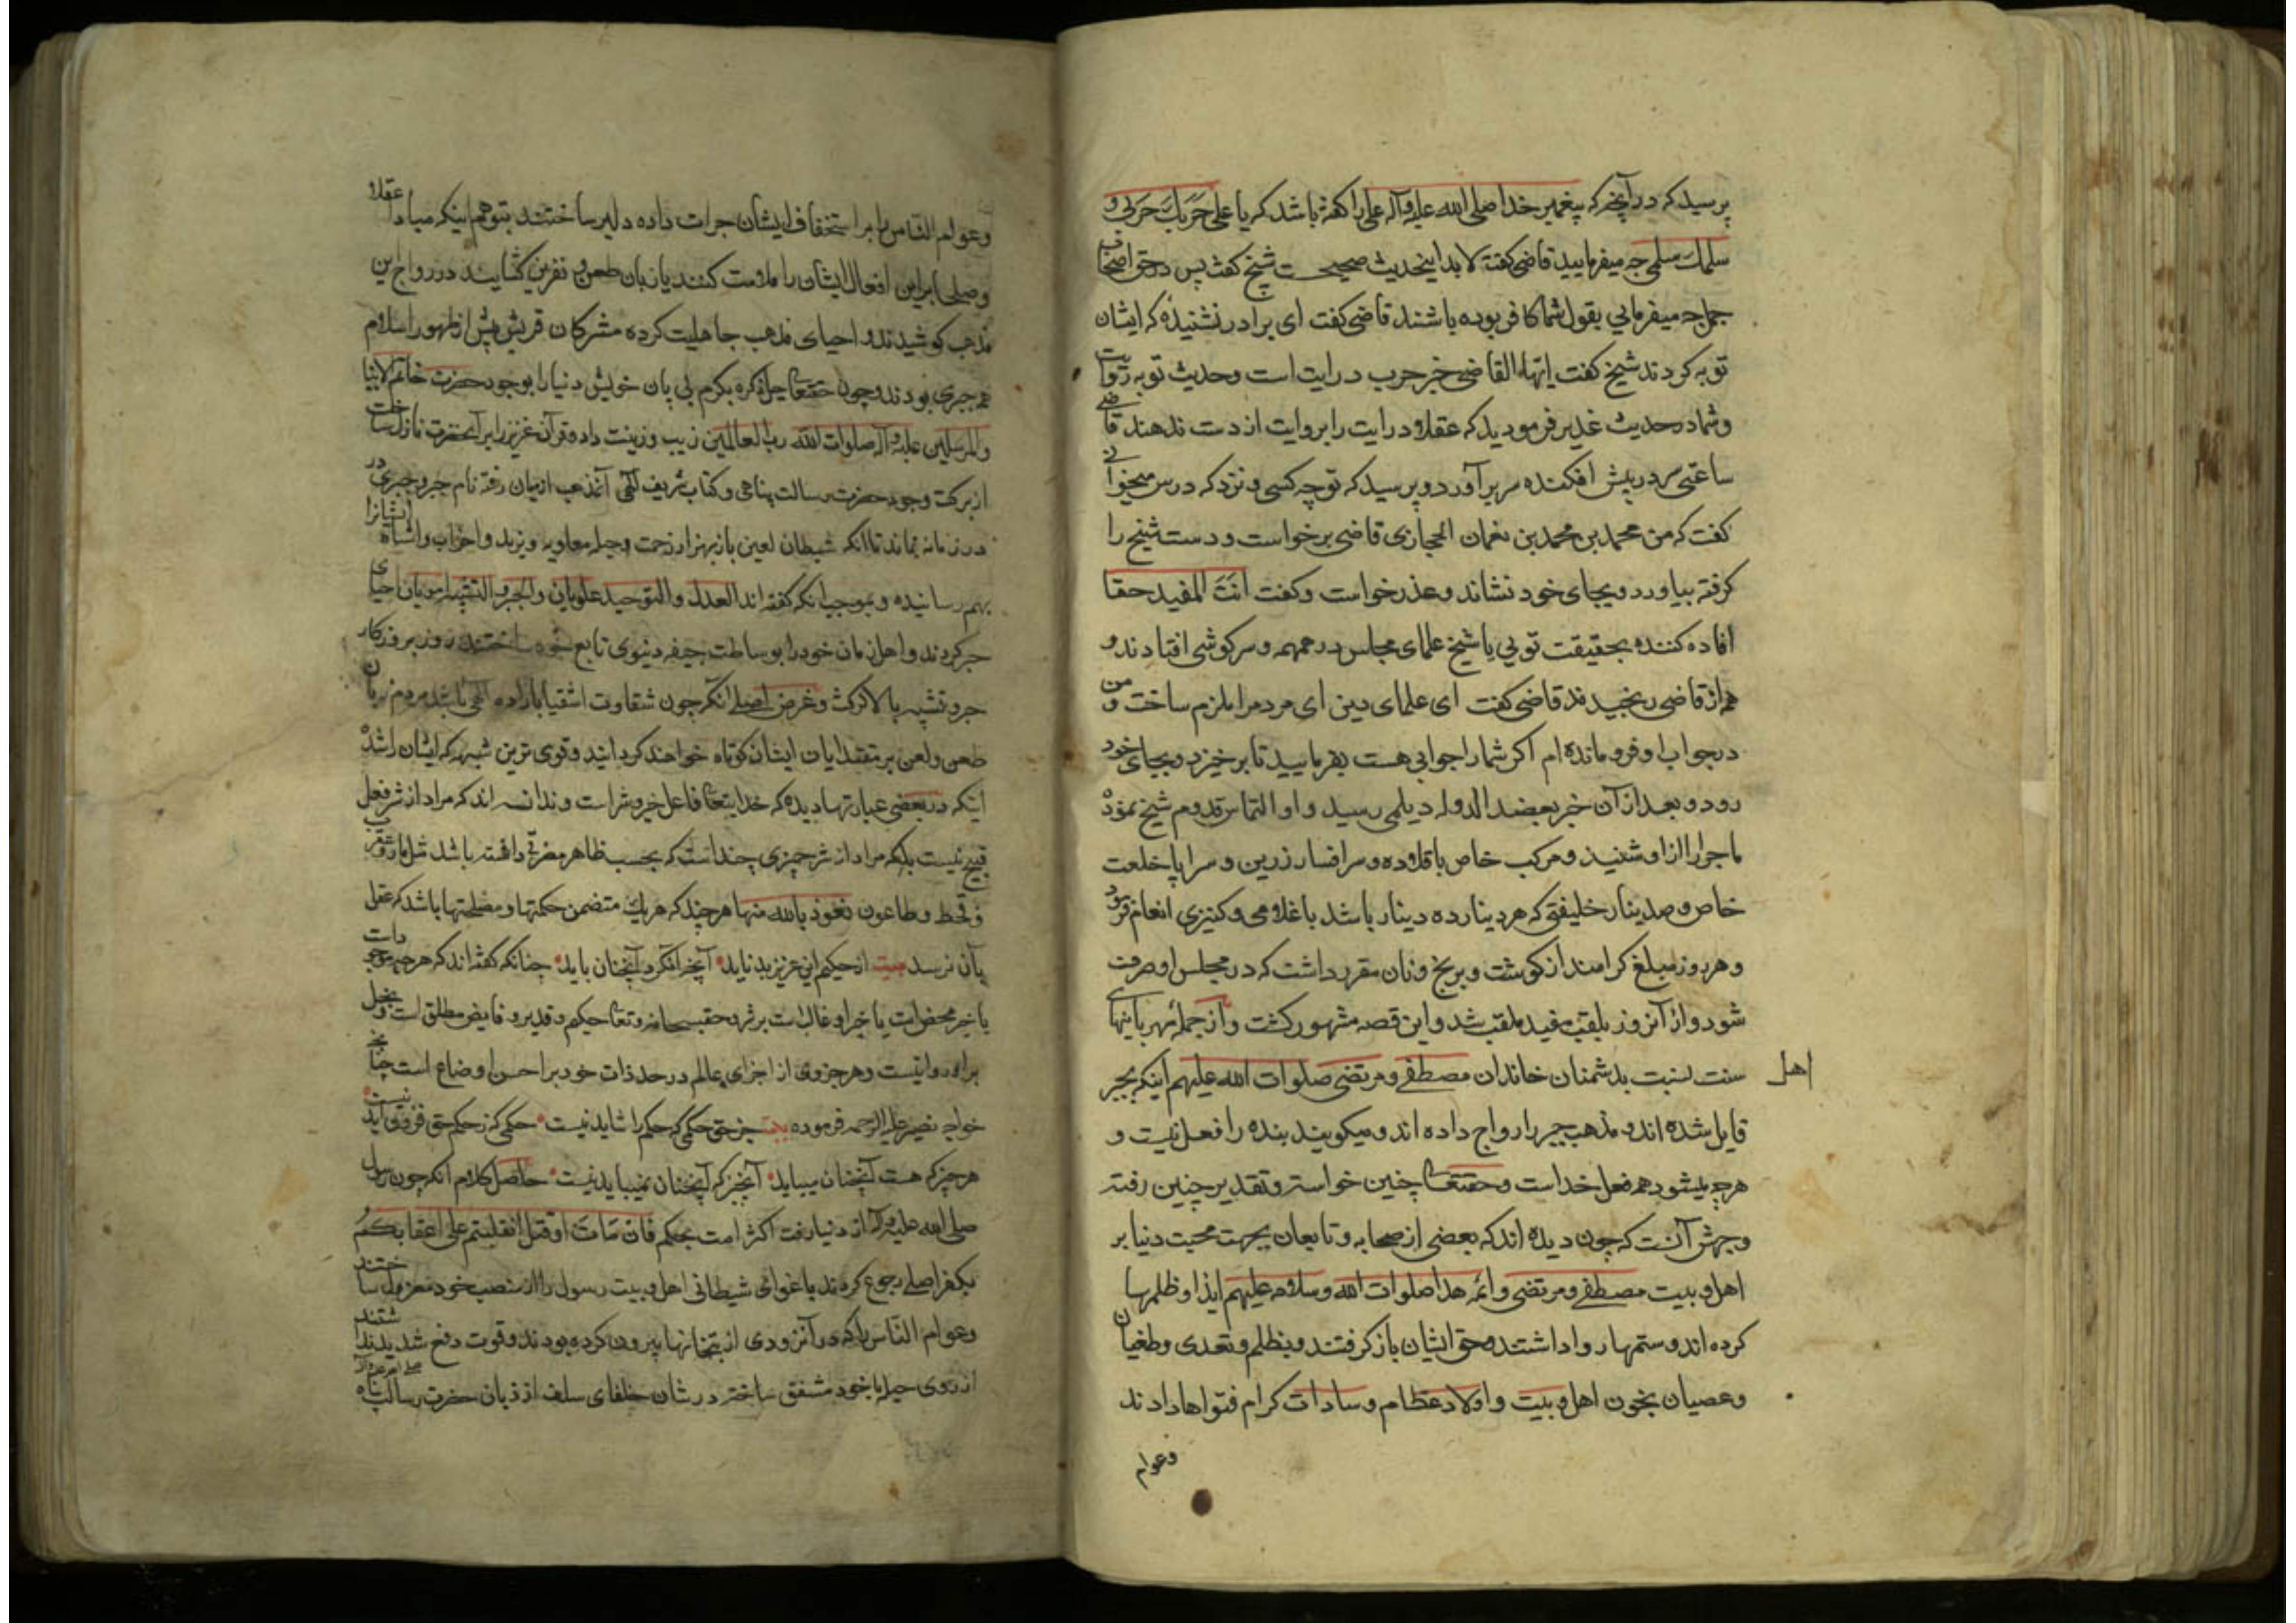 پرسید که در آنچه که پیغمبر خدا صلی الله علیه وآله علی را کفته باشد که یا علی حربک حربی و
سلمک سلمی چه میفرمایید قاضی کفته لابد اینحدیث صحیحست شیخ کفت پس در حق اصحاب
جمل چه میفرمایی بقول شما کافر بوده باشند قاضی کفت ای برادر نشنیدۀ که ایشان
توبه کردند شیخ کفت ایها القاضی خبر حرب درایت است وحدیث توبه روایت
وشما در حدیث غدیر فرمودید که عقلا درایت را بروایت از دست ندهند قاضی
ساعتی سر در پیش افکنده سر بر آورد و پرسید که تو چه کسی و نزد که درس میخوانی
کفت که من محمد بن محمد بن نعمان الحجازی قاضی برخواست و دست شیخ را
کرفته بیاورد و بجای خود نشاند وعذر خواست وکفت انت المفید حقا
افاده کننده بحقیقت تویی یا شیخ علمای مجلس در همهمه و سرکوشی افتادند و
همه از قاضی رنجیدند قاضی کفت ای علمای دین ای مرد مرا ملزم ساخت و من
در جواب او فرو مانده ام اکر شما را جوابی هست بفرمایید تا بر خیزد و بجای خود
رود و بعد از آن خبر بعضد الدوله دیلمی رسید و او التماس قدوم شیخ نموده
ماجرا را از او شنید و مرکب خاص با قلاده و سر افسار زرین و سراپا خلعت
خاص و صد دینار خلیفتی که هر دینار ده دینار باشد با غلامی و کنیزی انعام فرمود
و هر روز مبلغ کرامند از کوشت و برنج و نان مقرر داشت که در مجلس او صرف
شود و از آنروز بلقب مفید ملقب شد و این قصه مشهور کشت و از جمله مهربانیهای
اهل سنت نسبت بدشمنان خاندان مصطفی و مرتضی صلوات الله علیهم اینکه بجبر
قایل شده اند و مذهب جبر را رواج داده اند و میکویند بنده را فعل نیست و
هر چه میشود همه فعل خداست وحقتعالی چنین خواسته و تقدیر چنین رفته
و جهش آنست که چون دیده اند که بعضی از صحابه و تابعان بجهت محبت دنیا بر
اهل بیت مصطفی و مرتضی وائمه هدا صلوات الله وسلامه علیهم ایذا و ظلمها
کرده اند و ستمها روا داشتند وحق ایشان باز کرفتند و بظلم و تعدی و طغیان
وعصیان بخون اهل بیت و اولاد عظام وسادات کرام فتواها دادند
وعوام
وعوام الناس را بر استخفاف ایشان جرات داده دلیر ساختند بتوهم اینکه مبادا عقلا
وصلحا براین افعال ایشان را ملامت کنند یا زبان طعن و نفرین کشایند در رواج این
مذهب کوشیدند و احیای مذهب جاهلیت کرده مشرکان قریش پیش از ظهور اسلام
همه جبری بودند و چون حقتعالی جل ذکره بکرم بی پایان خویش دنیا را بوجود حضرت خاتم الانبیا
والمرسلین علیه وآله صلوات الله رب العالمین زیب وزینت داد وقرآن عزیز را بر آنحضرت نازل ساخت
از برکت وجود حضرت رسالت پناهی و کتاب شریف الهی آنمذهب از میان رفته نام جبر و جبری در
در زمانه نماند تا آنکه شیطان لعین باز بهزار زحمت وحیله معاویه ویزید و احزاب واشباه ایشانرا
بهم رسانیده و بموجب آنکه کفته اند العدل والتوحید علویان والجبر والتشبیه امویان احیای
جبر کردند و اهل زمان خود را بوساطت جیفه دنیوی تابع خود ساختند روز بروز کار
جبر و تشبیه بالا کرفت وغرض اصلی آنکه چون شقاوت اشقیا باراده الهی باشد مردم زبان
طعن ولعن بر مقتدایان ایشان کوتاه خواهند کردانید و قوی ترین شبهه که ایشان را شده
اینکه در بعضی عبارتها دیده که خدایتعالی فاعل خیر وشر است وندانسته اند که مراد از شر فعل
قبیح نیست بلکه مراد از شر چیزی چنداست که بحسب ظاهر مضرتی داشته باشد مثل مار وعقرب
وقحط وطاعون نعوذ بالله منها هر چند که هر یک متضمن حکمتها و مصلحتها باشد که عقل
بآن نرسد بیت از حکیم این عزیز بد ناید آنچه آنکرد آنچنان باید چنانکه کفته اند که هر چه موجودات
یا خیر محض است یا خیر او غالب است بر شر وحق سبحانه وتعالی حکیم و قدیر و فایض مطلق است وبخل
بر او روا نیست و هر جزوی از اجزای عالم در حد ذات خود بر احسن اوضاع است چنانچه
خواجه نصیر علیه الرحمه فرموده بیت جز حق حکمی که حکم را شاید نیست حکمی که ز حکم حق فزون آید نیست
هر چیز که هست آنچنان میباید آنچیز که آنچنان نمیباید نیست حاصل کلام آنکه چون رسول
صلی الله علیه وآله از دنیا رفت اکثر امت بحکم فان مات او قتل انقلبتم علی اعقابکم
بکفر اصلی رجوع کردند باغوای شیطانی اهل بیت رسول را از منصب خود معزول ساختند
وعوام الناس را که در آنزودی از بتخانها بیرون کرده بودند وقوت دفع شدید نداشتند
از روی حیله با خود متفق ساخته در شان خلفای سلف از زبان حضرت رسالت پناه صلی الله علیه وآله